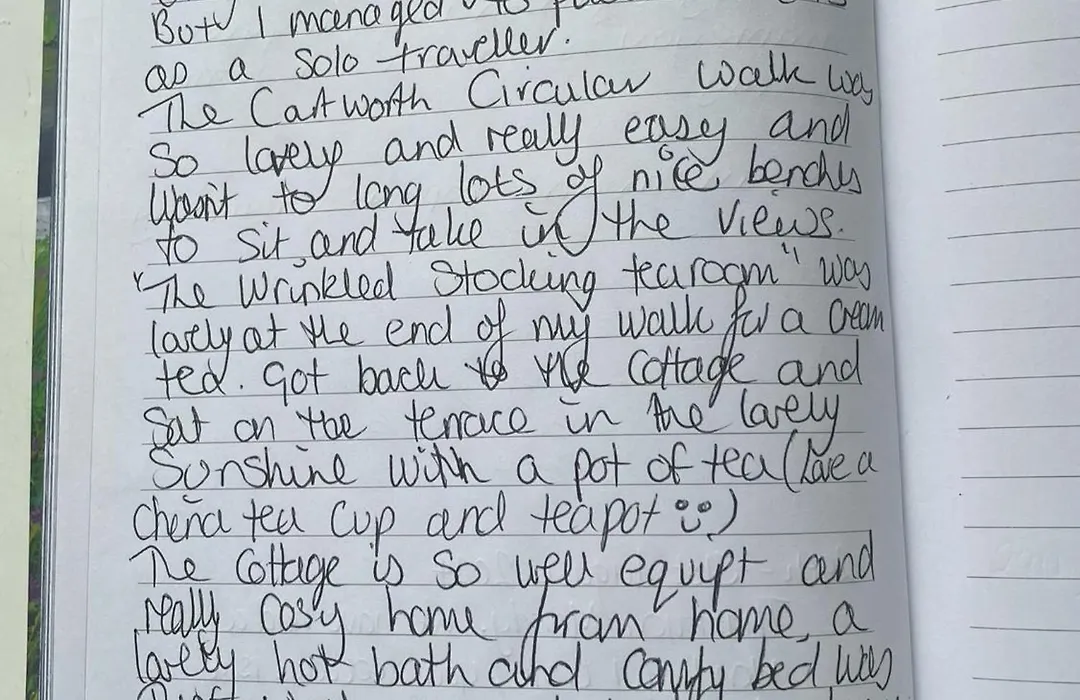 But I managed to
as a solo traveller.
The Cartworth Circular walk way
So lovely and really easy and
Wasn't to long lots of nice benchs
to sit, and take in the views.
"The Wrinkled Stocking tearoom" was
lovely at the end of my walk for a cream
tea. Got back to the cottage and
Sat on the terrace in the lovely
Sunshine with a pot of tea (love a
chena tea cup and teapot :))
The Cottage is so well equipt and
really cosy home from home, a
lovely hot bath and comfy bed was